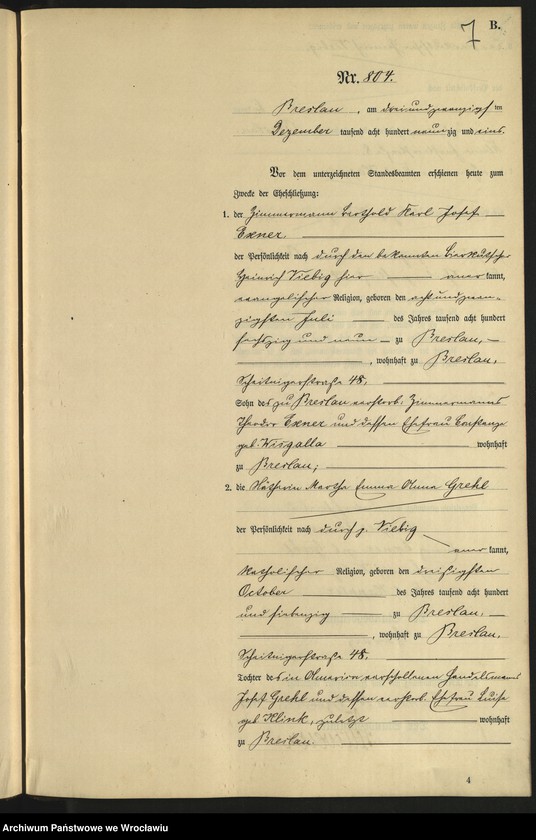 7 B.
Nr. 804.
Breslau, am dreiundzwanzigsten
Dezember tausend acht hundert neunzig und eins.
Vor dem unterzeichneten Standesbeamten erschienen heute zum
Zwecke der Eheschließung:
1. der Zimmermann Berthold Karl Josef
Exner
der Persönlichkeit nach durch den bekannten Bierkutscher
Heinrich Viebig hier anerkannt,
evangelischer Religion, geboren den achtundzwan-
zigsten Juli des Jahres tausend acht hundert
sechszig und neun zu Breslau,
, wohnhaft zu Breslau,
Scheitnigerstraße 48,
Sohn des zu Breslau verstorb. Zimmermanns
Theodor Exner und dessen Ehefrau
geb. Wisgalla wohnhaft
zu Breslau;
2. die Nätherin Martha Emma Anna Grehl
der Persönlichkeit nach durch p. Viebig
anerkannt,
katholischer Religion, geboren den dreißigsten
October des Jahres tausend acht hundert
und siebenzig zu Breslau,
, wohnhaft zu Breslau,
Scheitnigerstraße 48,
Tochter des in Amerika verschollenen Handelsmanns
Josef Grehl und dessen verstorb. Ehefrau Luise
geb. Klink, zuletzt wohnhaft
zu Breslau.
4
Archiwum Państwowe we Wrocławiu